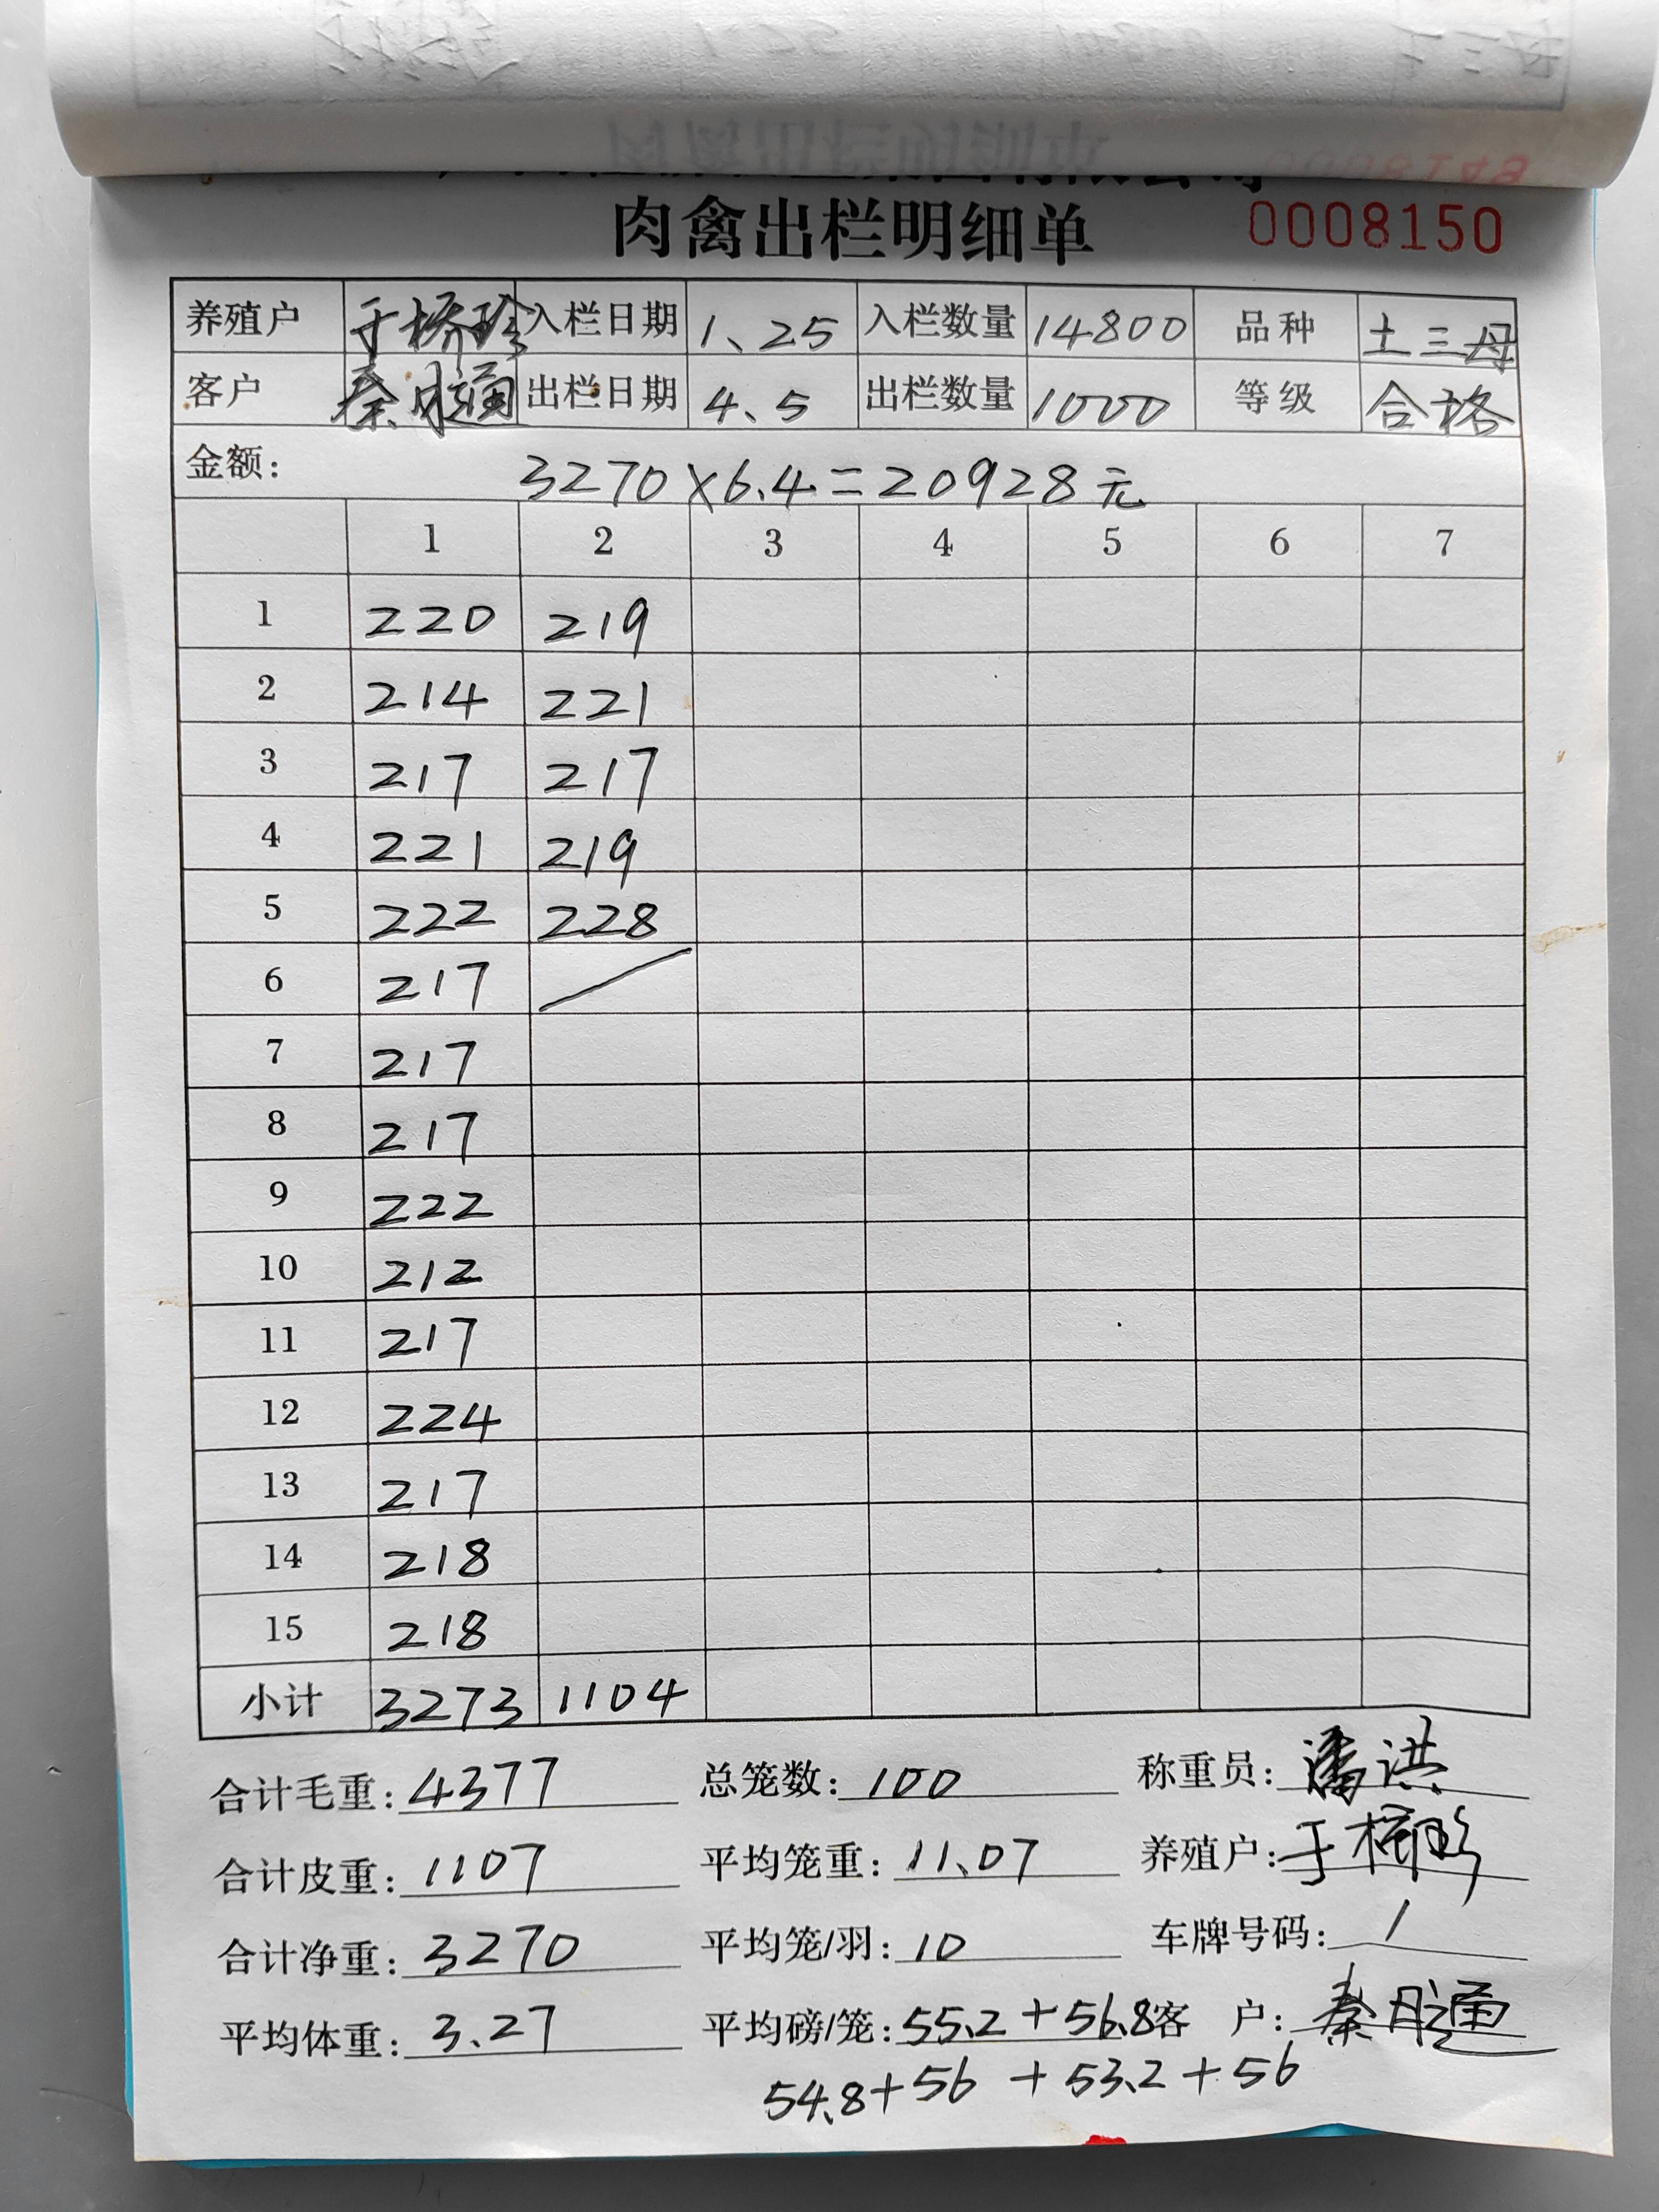 肉禽出栏明细单 0008150
养殖户 于桥珍 入栏日期 1、25 入栏数量 14800 品种 土三母
客户 秦月通 出栏日期 4、5 出栏数量 1000 等级 合格
金额: 3270×6.4=20928元
1 2 3 4 5 6 7
1 220 219
2 214 221
3 217 217
4 221 219
5 222 228
6 217
7 217
8 217
9 222
10 212
11 217
12 224
13 217
14 218
15 218
小计 3273 1104
合计毛重: 4377 总笼数: 100 称重员: 潘洪
合计皮重: 1107 平均笼重: 11.07 养殖户: 于桥珍
合计净重: 3270 平均笼/羽: 10 车牌号码: /
平均体重: 3.27 平均磅/笼: 55.2+56.8 客户: 秦月通
54.8+56+53.2+56